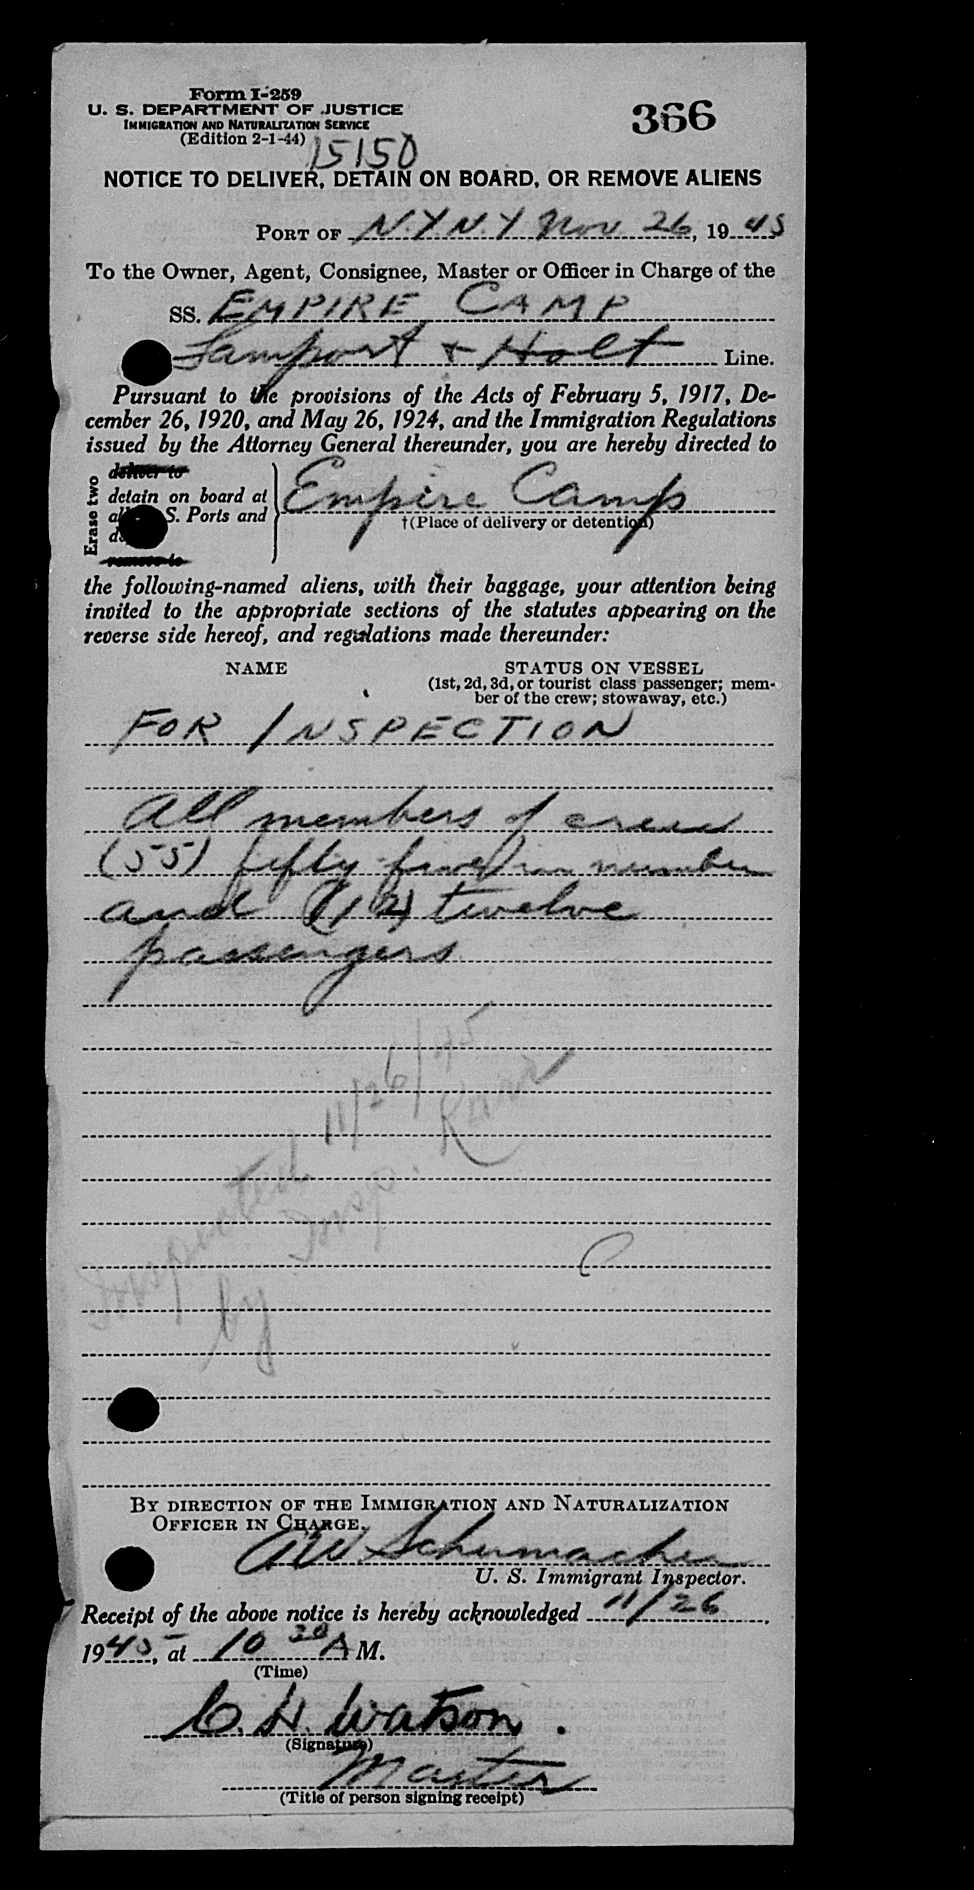 Form I-259
U. S. DEPARTMENT OF JUSTICE
IMMIGRATION AND NATURALIZATION SERVICE
(Edition 2-1-44)
366
15150
NOTICE TO DELIVER, DETAIN ON BOARD, OR REMOVE ALIENS
PORT OF N.Y.N.Y Nov 26, 1945
To the Owner, Agent, Consignee, Master or Officer in Charge of the
SS. EMPIRE CAMP
Lamport + Holt Line.
Pursuant to the provisions of the Acts of February 5, 1917, De-
cember 26, 1920, and May 26, 1924, and the Immigration Regulations
issued by the Attorney General thereunder, you are hereby directed to
Erase two
deliver to
detain on board at
S. Ports and
remove to
Empire Camp
†(Place of delivery or detention)
the following-named aliens, with their baggage, your attention being
invited to the appropriate sections of the statutes appearing on the
reverse side hereof, and regulations made thereunder:
NAME
STATUS ON VESSEL
(1st, 2d, 3d, or tourist class passenger; mem-
ber of the crew; stowaway, etc.)
FOR INSPECTION
All members of crew
(55) fifty five in number
and (12) twelve
passengers
Inspected 11/26/45
by Insp. Karr
BY DIRECTION OF THE IMMIGRATION AND NATURALIZATION
OFFICER IN CHARGE.
Schumacher
U. S. Immigrant Inspector.
Receipt of the above notice is hereby acknowledged 11/26,
1945, at 10 20 A M.
(Time)
C. H. Watson.
(Signature)
Master
(Title of person signing receipt)